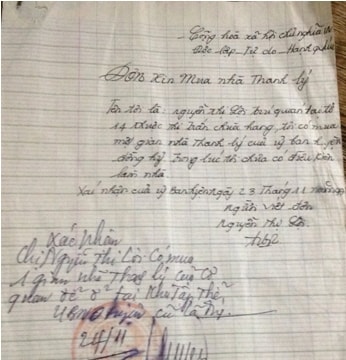 Cộng hòa xã hội chủ nghĩa
Độc lập - Tự do - Hạnh phúc
Đơn Xin Mua nhà Thanh lý
Tên tôi là: nguyễn thị Lôi trú quán tại tổ
14 thuộc thị trấn chùa hang, tôi có mua
một gian nhà thanh lý của uỷ ban huyện
đồng hỷ trong lúc tôi chưa có điều kiện
làm nhà
Xác nhận của uỷ ban huyện ngày 23 Tháng 11
người viết đơn
Nguyễn Thị Lôi
Xác Nhận
Chị Nguyễn Thị Lôi có mua
1 gian nhà Thanh lý của cơ
quan để ở tại khu tập thể
UBND huyện cũ là đúng.
24/11